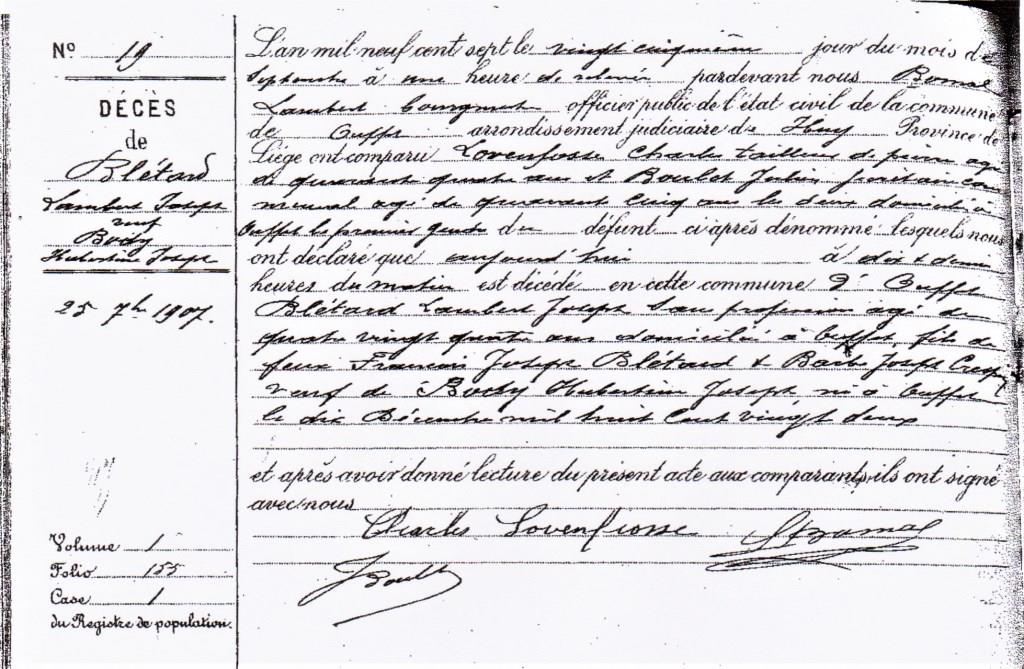 N° 19
DÉCÈS
de
Blétard
Lambert Joseph
veuf
Body
Hubertine Joseph
25 7bre 1907.
Volume 1
Folio 155
Case 1
du Registre de population.
L'an mil neuf cent sept le vingt cinquième jour du mois de
Septembre à une heure de relevée pardevant nous Bomal
Lambert bourgmestre officier public de l'état civil de la commune
de Ouffet arrondissement judiciaire de Huy Province de
Liège ont comparu Lovenfosse Charles tailleur de pierre agé
de quarante quatre ans et Boulet Julien Secrétaire com
munal agé de quarante cinq ans les deux domiciliés à
Ouffet le premier gendre du défunt ci après dénommé lesquels nous
ont déclaré que aujourd'hui à dix & demie
heures du matin est décédé en cette commune d' Ouffet
Blétard Lambert Joseph sans profession agé de
quatre vingt quatre ans domicilié à Ouffet, fils de
feux François Joseph Blétard & Barbe Joseph
veuf de Body Hubertine Joseph, né à Ouffet
le dix Décembre mil huit cent vingt deux
et après avoir donné lecture du présent acte aux comparants, ils ont signé
avec nous
Charles Lovenfosse LBomal
JBoulet